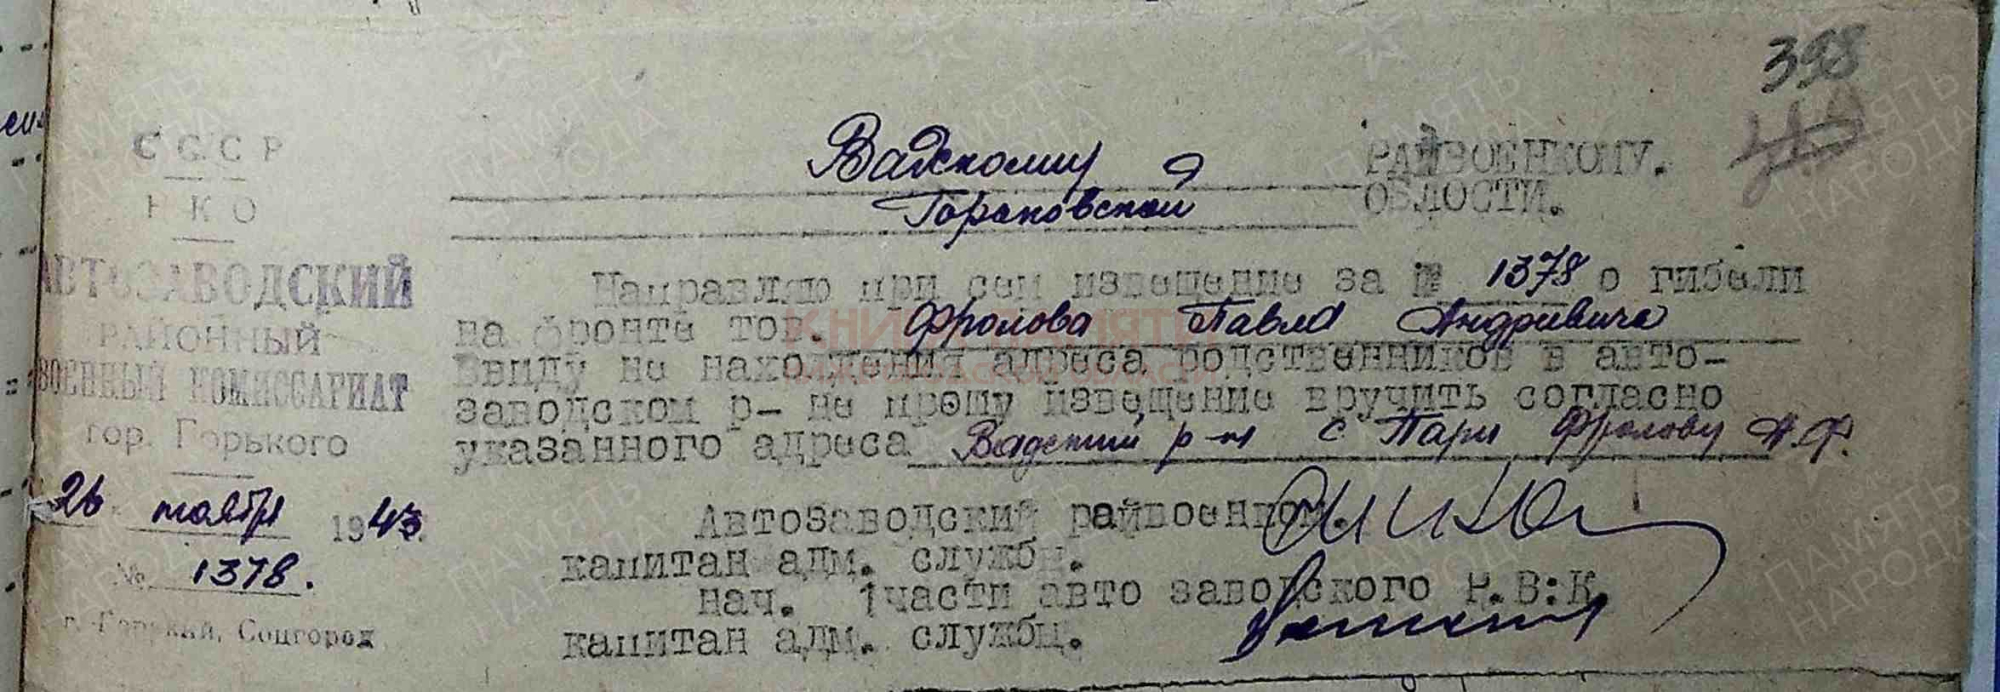 398
СССР
НКО
АВТОЗАВОДСКИЙ
РАЙОННЫЙ
ВОЕННЫЙ КОМИССАРИАТ
гор. Горького
26 ноября 1943.
№ 1378.
г. Горький, Соцгород
Вадскому РАЙВОЕНКОМУ.
Горьковской ОБЛОСТИ.
Направляю при сем извещение за № 1378 о гибели
на фронте тов. Фролова Павла Андреевича
Ввиду не нахождения адреса родственников в авто-
заводском р- не прошу извещение вручить согласно
указанного адреса Вадский р-н с Пары Фролову А.Ф.
Автозаводский райвоенком.
капитан адм. службы.
нач. 1 части авто заводского Р.В:К.
капитан адм. службы.
ПАМЯТЬ НАРОДА
КНИГА ПАМЯТИ
НИЖЕГОРОДСКОЙ ОБЛАСТИ